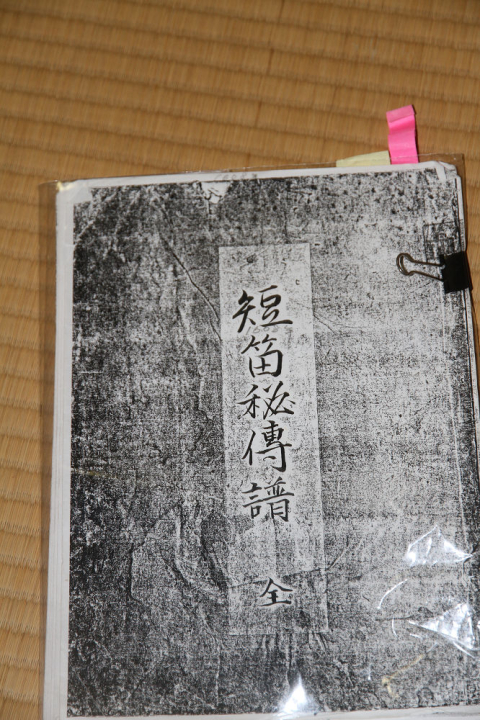 短笛秘傳譜 全